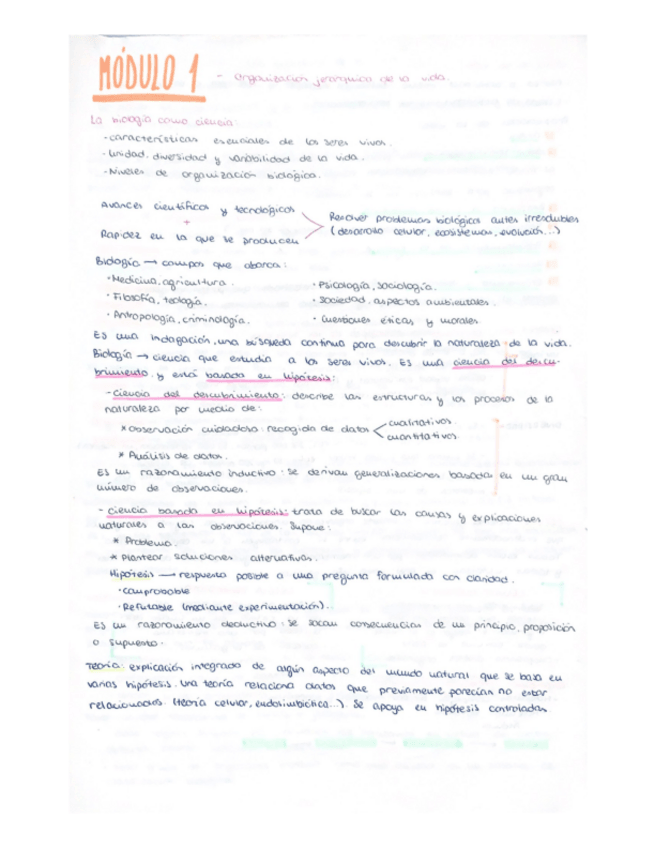 MÓDULO 1 - Organización jerárquica de la vida.
La biología como ciencia:
· Características esenciales de los seres vivos.
· Unidad, diversidad y variabilidad de la vida.
· Niveles de organización biológica.
Avances científicos y tecnológicos
+
Rapidez en la que se producen
Resolver problemas biológicos antes irresolubles
(desarrollo celular, ecosistemas, evolución...)
Biología → campos que abarca:
· Medicina, agricultura.
· Filosofía, teología.
· Antropología, criminología.
· Psicología, sociología.
· Sociedad, aspectos ambientales.
· Cuestiones éticas y morales.
Es una indagación, una búsqueda continua para descubrir la naturaleza de la vida.
Biología → ciencia que estudia a los seres vivos. Es una ciencia del descu-
brimiento, y está basada en hipótesis:
- Ciencia del descubrimiento: describe las estructuras y los procesos de la
naturaleza por medio de:
* Observación cuidadosa: recogida de datos
cualitativos.
cuantitativos.
* Análisis de datos.
Es un razonamiento inductivo: se derivan generalizaciones basadas en un gran
número de observaciones.
- Ciencia basada en hipótesis: trata de buscar las causas y explicaciones
naturales a las observaciones. Supone:
* Problema.
* Plantear soluciones alternativas.
Hipótesis → respuesta posible a una pregunta formulada con claridad.
· Comprobable
· Refutable (mediante experimentación)...
Es un razonamiento deductivo: se sacan consecuencias de un principio, proposición
o supuesto.
Teoría: explicación integrada de algún aspecto del mundo natural que se basa en
varias hipótesis. Una teoría relaciona datos que previamente parecían no estar
relacionados. (teoría celular, endosimbiótica...). Se apoya en hipótesis controladas